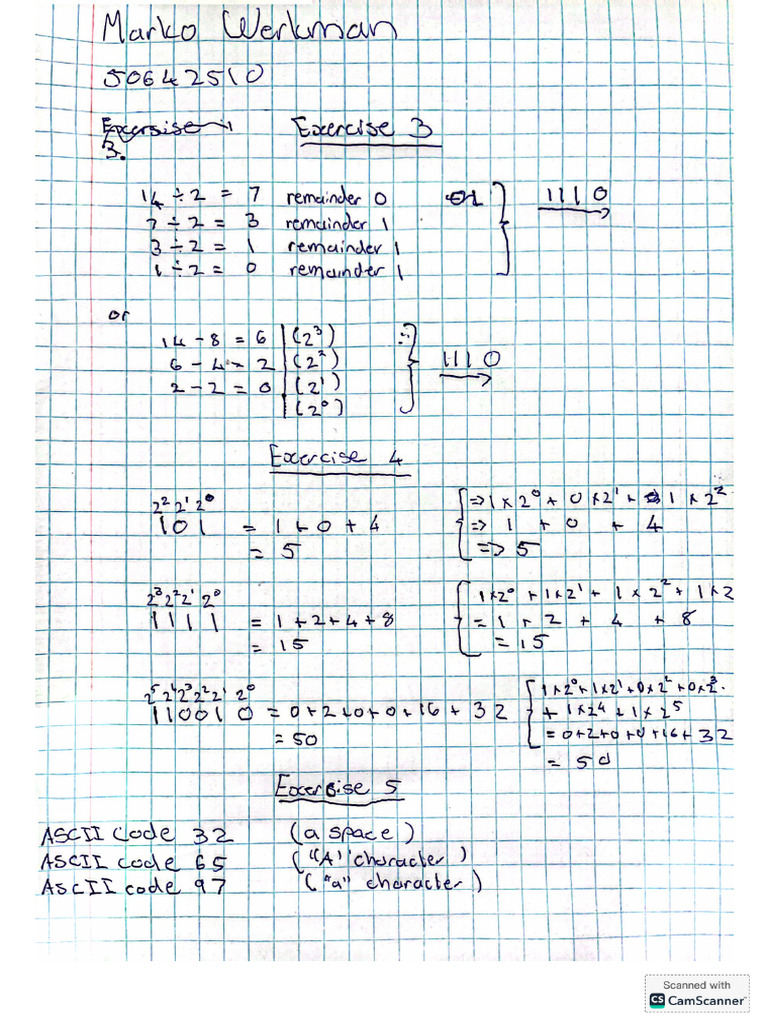 Marko Werkman
50642510
Exersise 1 Exercise 3
3.
14 ÷ 2 = 7 remainder 0
7 ÷ 2 = 3 remainder 1
3 ÷ 2 = 1 remainder 1
1 ÷ 2 = 0 remainder 1
1110
or
14 - 8 = 6 | (2³)
6 - 4 = 2 | (2²)
2 - 2 = 0 | (2¹)
| (2⁰)
1110
Exercise 4
2² 2¹ 2⁰
101 = 1 + 0 + 4
= 5
=> 1 × 2⁰ + 0 × 2¹ + 1 × 2²
=> 1 + 0 + 4
=> 5
2³ 2² 2¹ 2⁰
1111 = 1 + 2 + 4 + 8
= 15
1×2⁰ + 1×2¹ + 1×2² + 1×2
= 1 + 2 + 4 + 8
= 15
2⁵ 2⁴ 2³ 2² 2¹ 2⁰
110010 = 0 + 2 + 0 + 0 + 16 + 32
= 50
1×2⁰ + 1×2¹ + 0×2² + 0×2³
+ 1×2⁴ + 1×2⁵
= 0 + 2 + 0 + 0 + 16 + 32
= 50
Exercise 5
ASCII code 32 (a space)
ASCII code 65 ("A" character)
ASCII code 97 ("a" character)
Scanned with
CS CamScanner